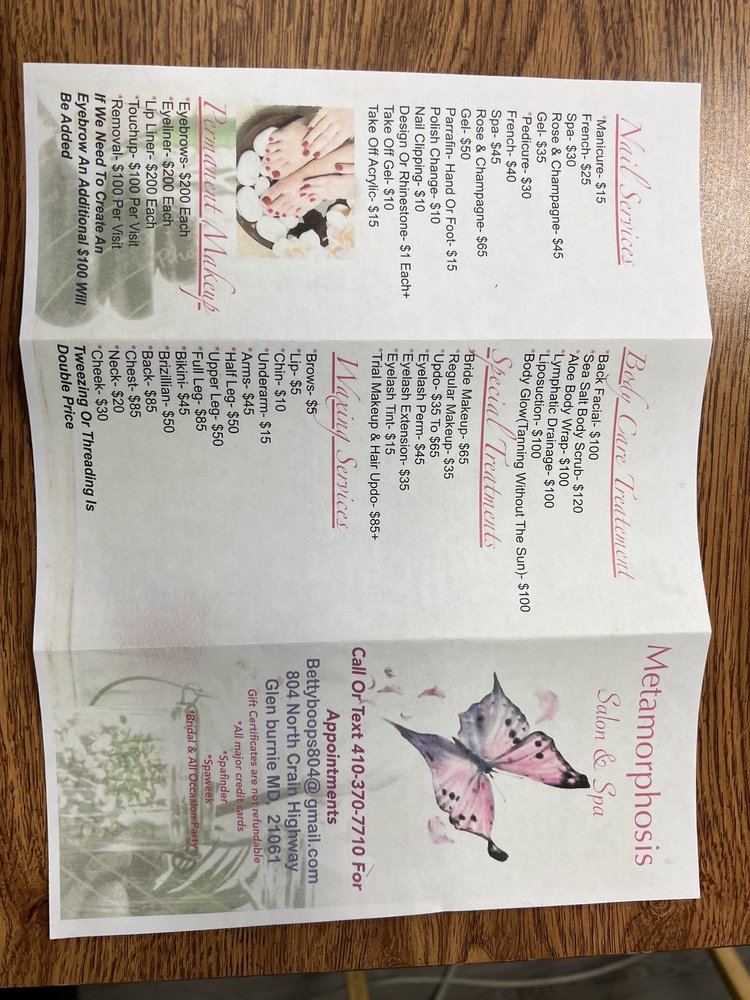 Nail Services
*Manicure- $15
French- $25
Spa- $30
Rose & Champagne- $45
Gel- $35
*Pedicure- $30
French- $40
Spa- $45
Rose & Champagne- $65
Gel- $50
Parrafin- Hand Or Foot- $15
Polish Change- $10
Nail Clipping- $10
Design Or Rhinestone- $1 Each+
Take Off Gel- $10
Take Off Acrylic- $15
Permanent Makeup
*Eyebrows- $200 Each
*Eyeliner- $200 Each
*Lip Liner- $200 Each
*Touchup- $100 Per Visit
*Removal- $100 Per Visit
If We Need To Create An
Eyebrow An Additional $100 Will
Be Added
Body Care Treatement
*Back Facial- $100
*Sea Salt Body Scrub- $120
*Aloe Body Wrap- $100
*Lymphatic Drainage- $100
*Liposuction- $100
*Body Glow(Tanning Without The Sun)- $100
Special Treatments
*Bride Makeup- $65
*Regular Makeup- $35
*Updo- $35 To $65
*Eyelash Perm- $45
*Eyelash Extension- $35
*Eyelash Tint- $15
*Trial Makeup & Hair Updo- $85+
Waxing Services
*Brows- $5
*Lip- $5
*Chin- $10
*Underarm- $15
*Arms- $45
*Half Leg- $50
*Upper Leg- $50
*Full Leg- $85
*Bikini- $45
*Brizillian- $50
*Back- $85
*Chest- $85
*Neck- $20
*Cheek- $30
Tweezing Or Threading Is
Double Price
Metamorphosis
Salon & Spa
Call Or Text 410-370-7710 For
Appointments
Bettyboops804@gmail.com
804 North Crain Highway
Glen burnie MD, 21061
Gift Certificates are not refundable
*All major credit cards
*Spafinder
*Spaweek
*Bridal & All Occasion Party